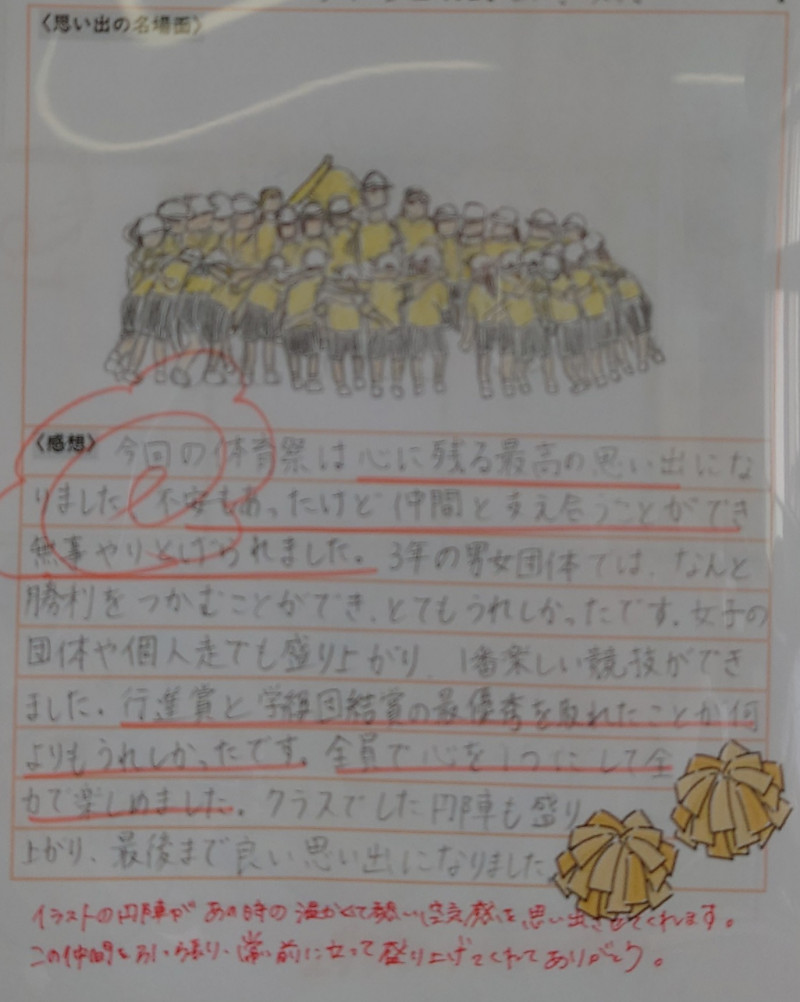 〈思い出の名場面〉
〈感想〉 今回の体育祭は心に残る最高の思い出にな
りました 不安もあったけど仲間と支え合うことができ
無事やりとげられました。3年の男女団体では、なんと
勝利をつかむことができ、とてもうれしかったです。女子の
団体や個人走でも盛り上がり、1番楽しい競技ができ
ました。行進賞と学級団結賞の最優秀を取れたことが何
よりもうれしかったです。全員で心を1つにして全
力で楽しめました。クラスでした円陣も盛り
上がり、最後まで良い思い出になりました
イラストの円陣が あの時の温かくて熱い 思い出させてくれます。
この仲間を引っ張り、常に前に立って盛り上げてくれてありがとう。